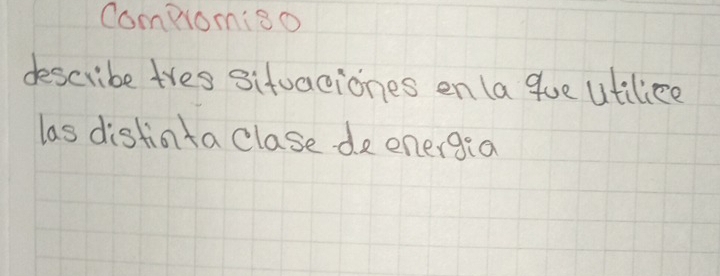 Compromiso
describe tres situaciones en la que utilice
las distinta clase de energia